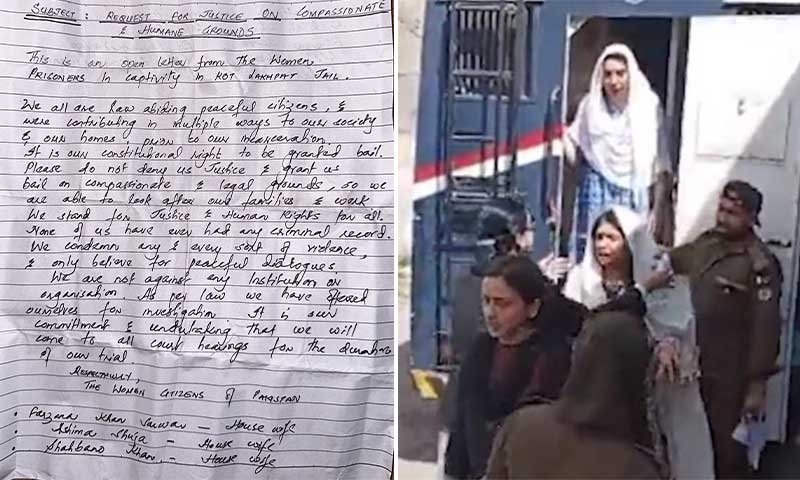 SUBJECT: REQUEST FOR JUSTICE ON COMPASSIONATE
& HUMANE GROUNDS.
This is an open letter from The Women
PRISONERS In captivity in KOT LAKHPAT JAIL.
We all are law abiding peaceful citizens, &
were contributing in multiple ways to our society
& our homes prior to our incarceration.
It is our constitutional right to be granted bail.
Please do not deny us Justice & grant us
bail on compassionate & legal grounds, so we
are able to look after our families & work
We stand for Justice & Human Rights for all.
None of us have ever had any criminal record.
We condemn any & every sort of violence,
& only believe for peaceful dialogues.
We are not against any Institution or
organisation. As per law we have offered
ourselves for investigation. It is our
commitment & undertaking that we will
come to all court hearings for the duration
of our trial
RESPECTFULLY,
THE WOMEN CITIZENS of PAKISTAN
• Farzana Khan Sarwar — House wife
• Ashima Shuja — House wife
• Shahbano Khan — House wife